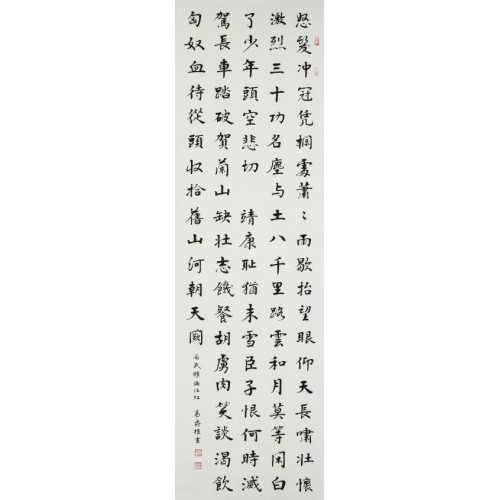 怒髮冲冠凭欄處蕭〻雨歇抬望眼仰天長嘯壯懷
激烈三十功名塵与土八千里路雲和月莫等闲白
了少年頭空悲切 靖康耻猶未雪臣子恨何時滅
駕長車踏破賀蘭山缺壯志饑餐胡虜肉笑談渴飲
匈奴血待從頭収拾舊山河朝天闕
岳武穆滿江红